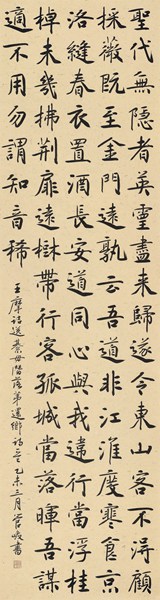 聖代無隱者英靈盡來歸遂令東山客不得顧
採薇既至金門遠孰云吾道非江淮度寒食京
洛縫春衣置酒長安道同心與我違行當浮桂
棹未幾拂荊扉遠樹帶行客孤城當落暉吾謀
適不用勿謂知音稀
王摩詰送綦毋潛落第還鄉詩乙未三月管峻書